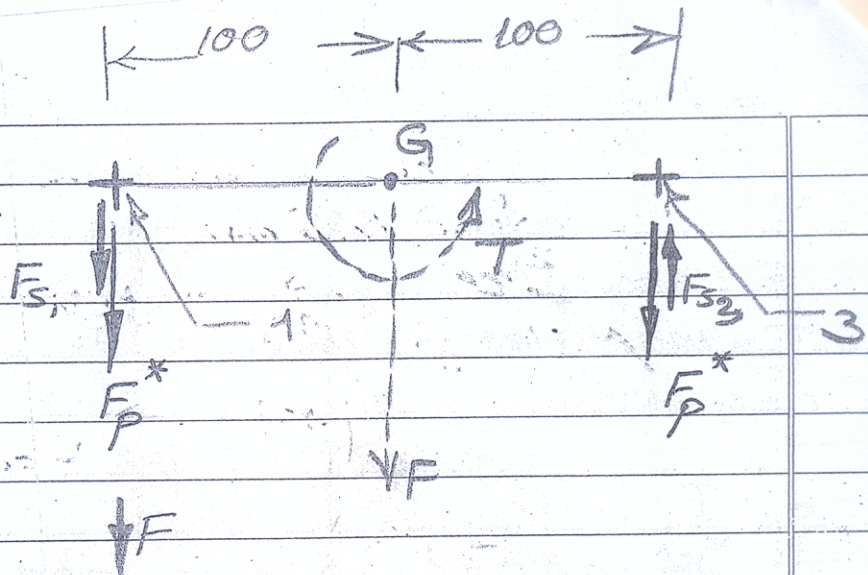 100 100
G
T
Fs1 Fs3
1 3
Fp* Fp*
F
F